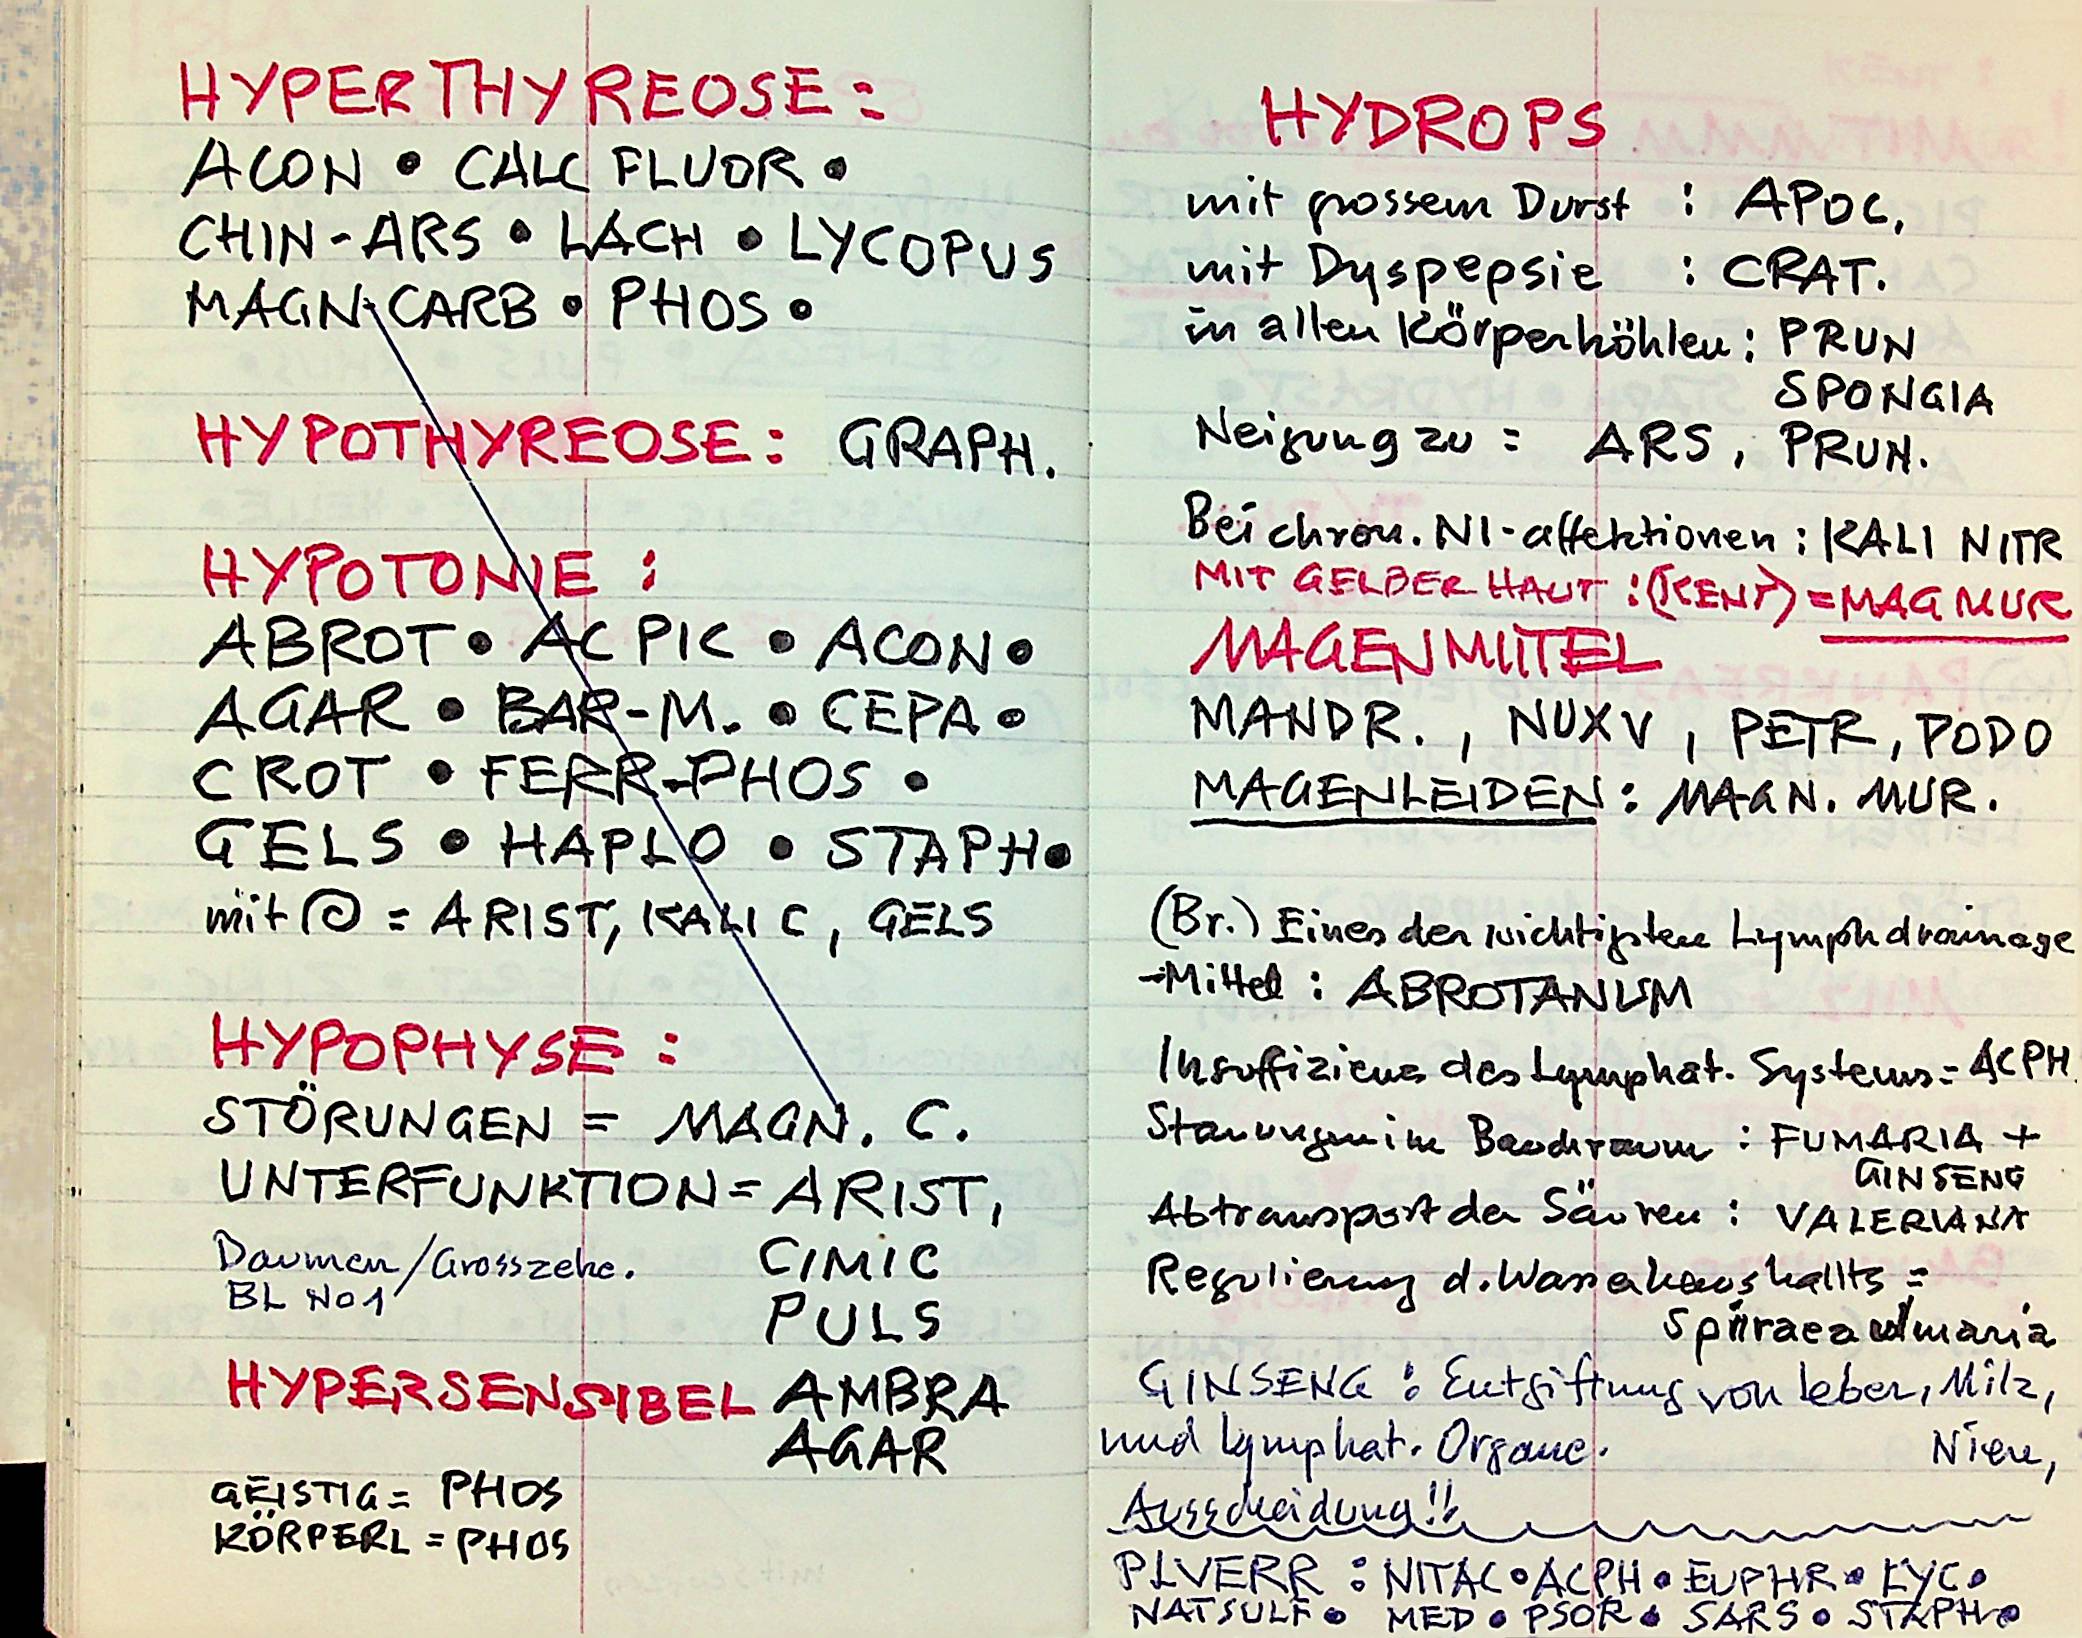 HYPERTHYREOSE:
ACON • CALC FLUOR •
CHIN-ARS • LACH • LYCOPUS
MAGN CARB • PHOS •
HYPOTHYREOSE: GRAPH.
HYPOTONIE:
ABROT • AC PIC • ACON •
AGAR • BAR-M. • CEPA •
CROT • FERR-PHOS •
GELS • HAPLO • STAPH •
mit = ARIST, KALI C, GELS
HYPOPHYSE:
STÖRUNGEN = MAGN. C.
UNTERFUNKTION = ARIST,
Daumen/Grosszehe. CIMIC
BL No 1 PULS
HYPERSENSIBEL AMBRA
AGAR
GEISTIG = PHOS
KÖRPERL = PHOS
HYDROPS
mit grossem Durst : APOC,
mit Dyspepsie : CRAT.
in allen Körperhöhlen : PRUN
SPONGIA
Neigung zu : ARS, PRUN.
Bei chron. NI-affektionen : KALI NITR
MIT GELBER HAUT : (KENT) = MAG MUR
MAGENMITTEL
MANDR. , NUXV , PETR, PODO
MAGENLEIDEN : MAGN. MUR.
(Br.) Eines der wichtigsten Lymphdrainage
-Mittel : ABROTANUM
Insuffizienz des Lymphat. Systems = ACPH.
Stauungen im Bauchraum : FUMARIA +
GINSENG
Abtransport der Säuren : VALERIANA
Regulierung d. Wasserhaushallts =
Spiraea ulmaria
GINSENG : Entgiftung von Leber, Milz,
und Lymphat. Organe. Niere,
Ausscheidung!!
PLVERR : NITAC • ACPH • EUPHR • LYC •
NATSULF • MED • PSOR • SARS • STAPH •